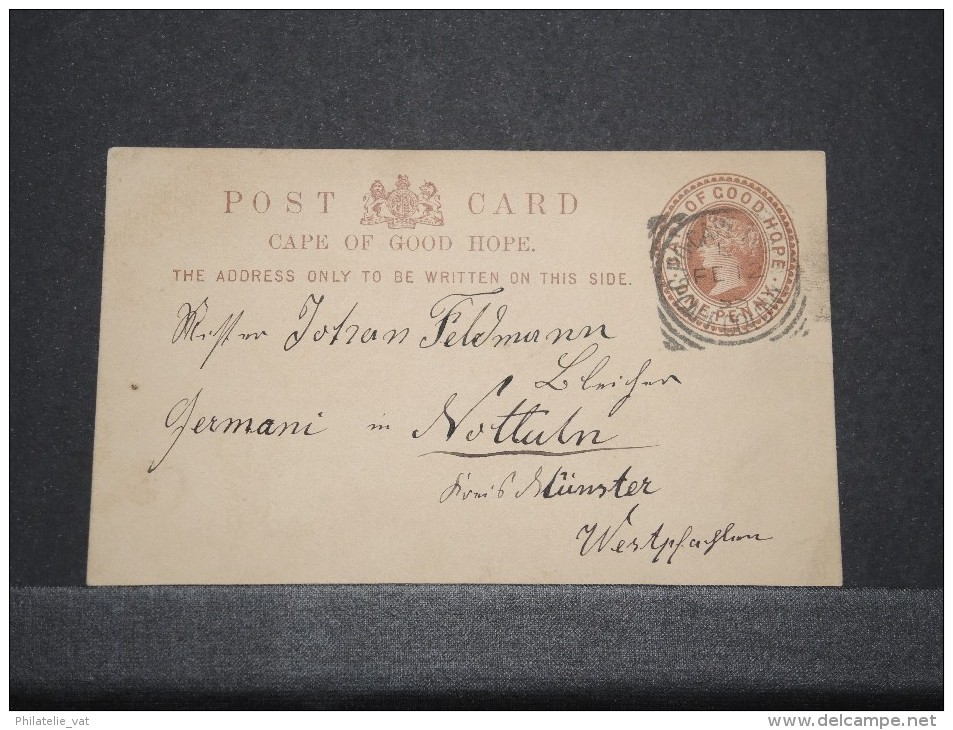 POST CARD
CAPE OF GOOD HOPE.
THE ADDRESS ONLY TO BE WRITTEN ON THIS SIDE.
CAPE OF GOOD HOPE
ONE PENNY
FE 12
Mister Johan Feldmann
Bleicher
Germani in Nottuln
Kreis Münster
Westphahlen
Philatelie_vat
www.delcampe.net